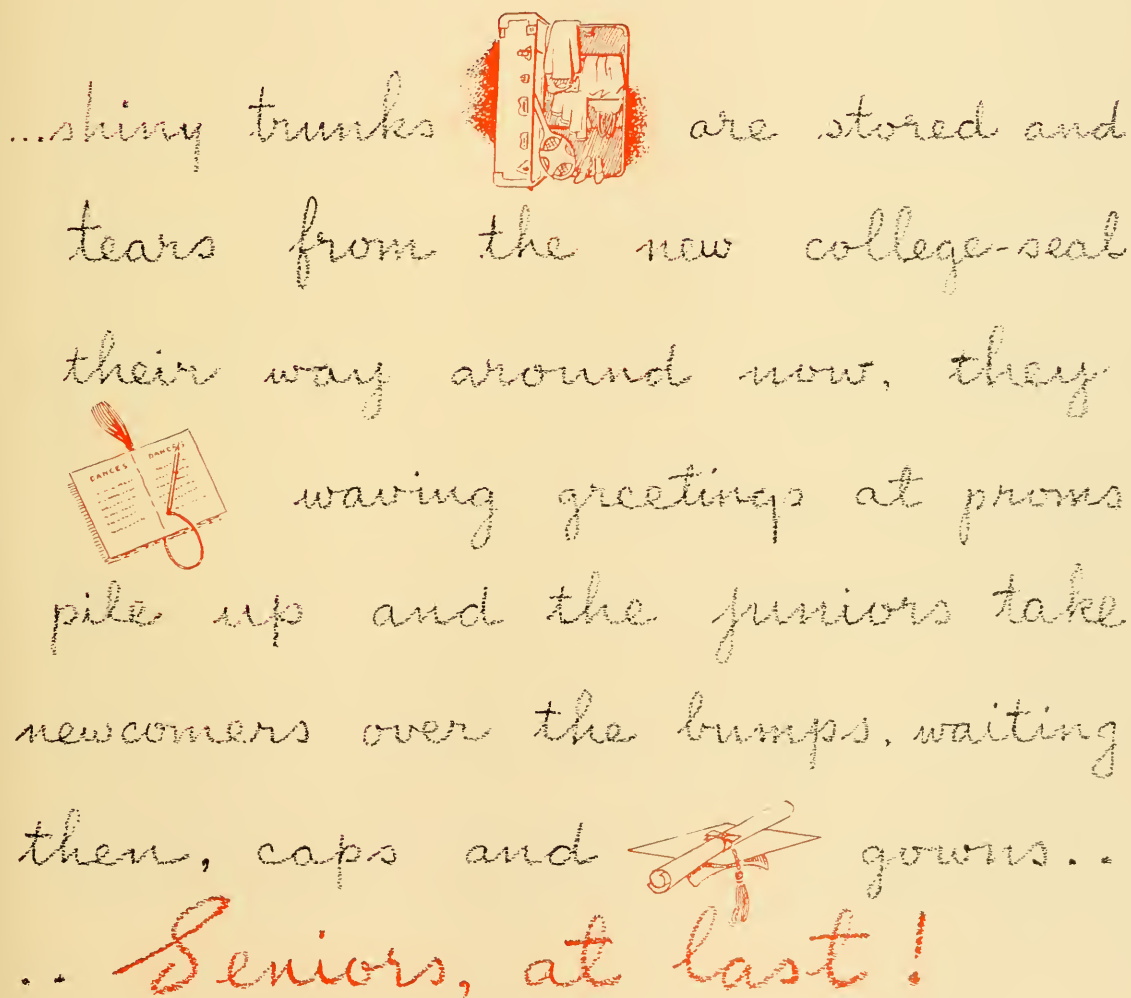 ...shiny trunks are stored and
tears from the new college-seal
their way around now, they
DANCES DANCES
waving greetings at proms
pile up and the juniors take
newcomers over the bumps, waiting
then, caps and gowns..
.. Seniors, at last!